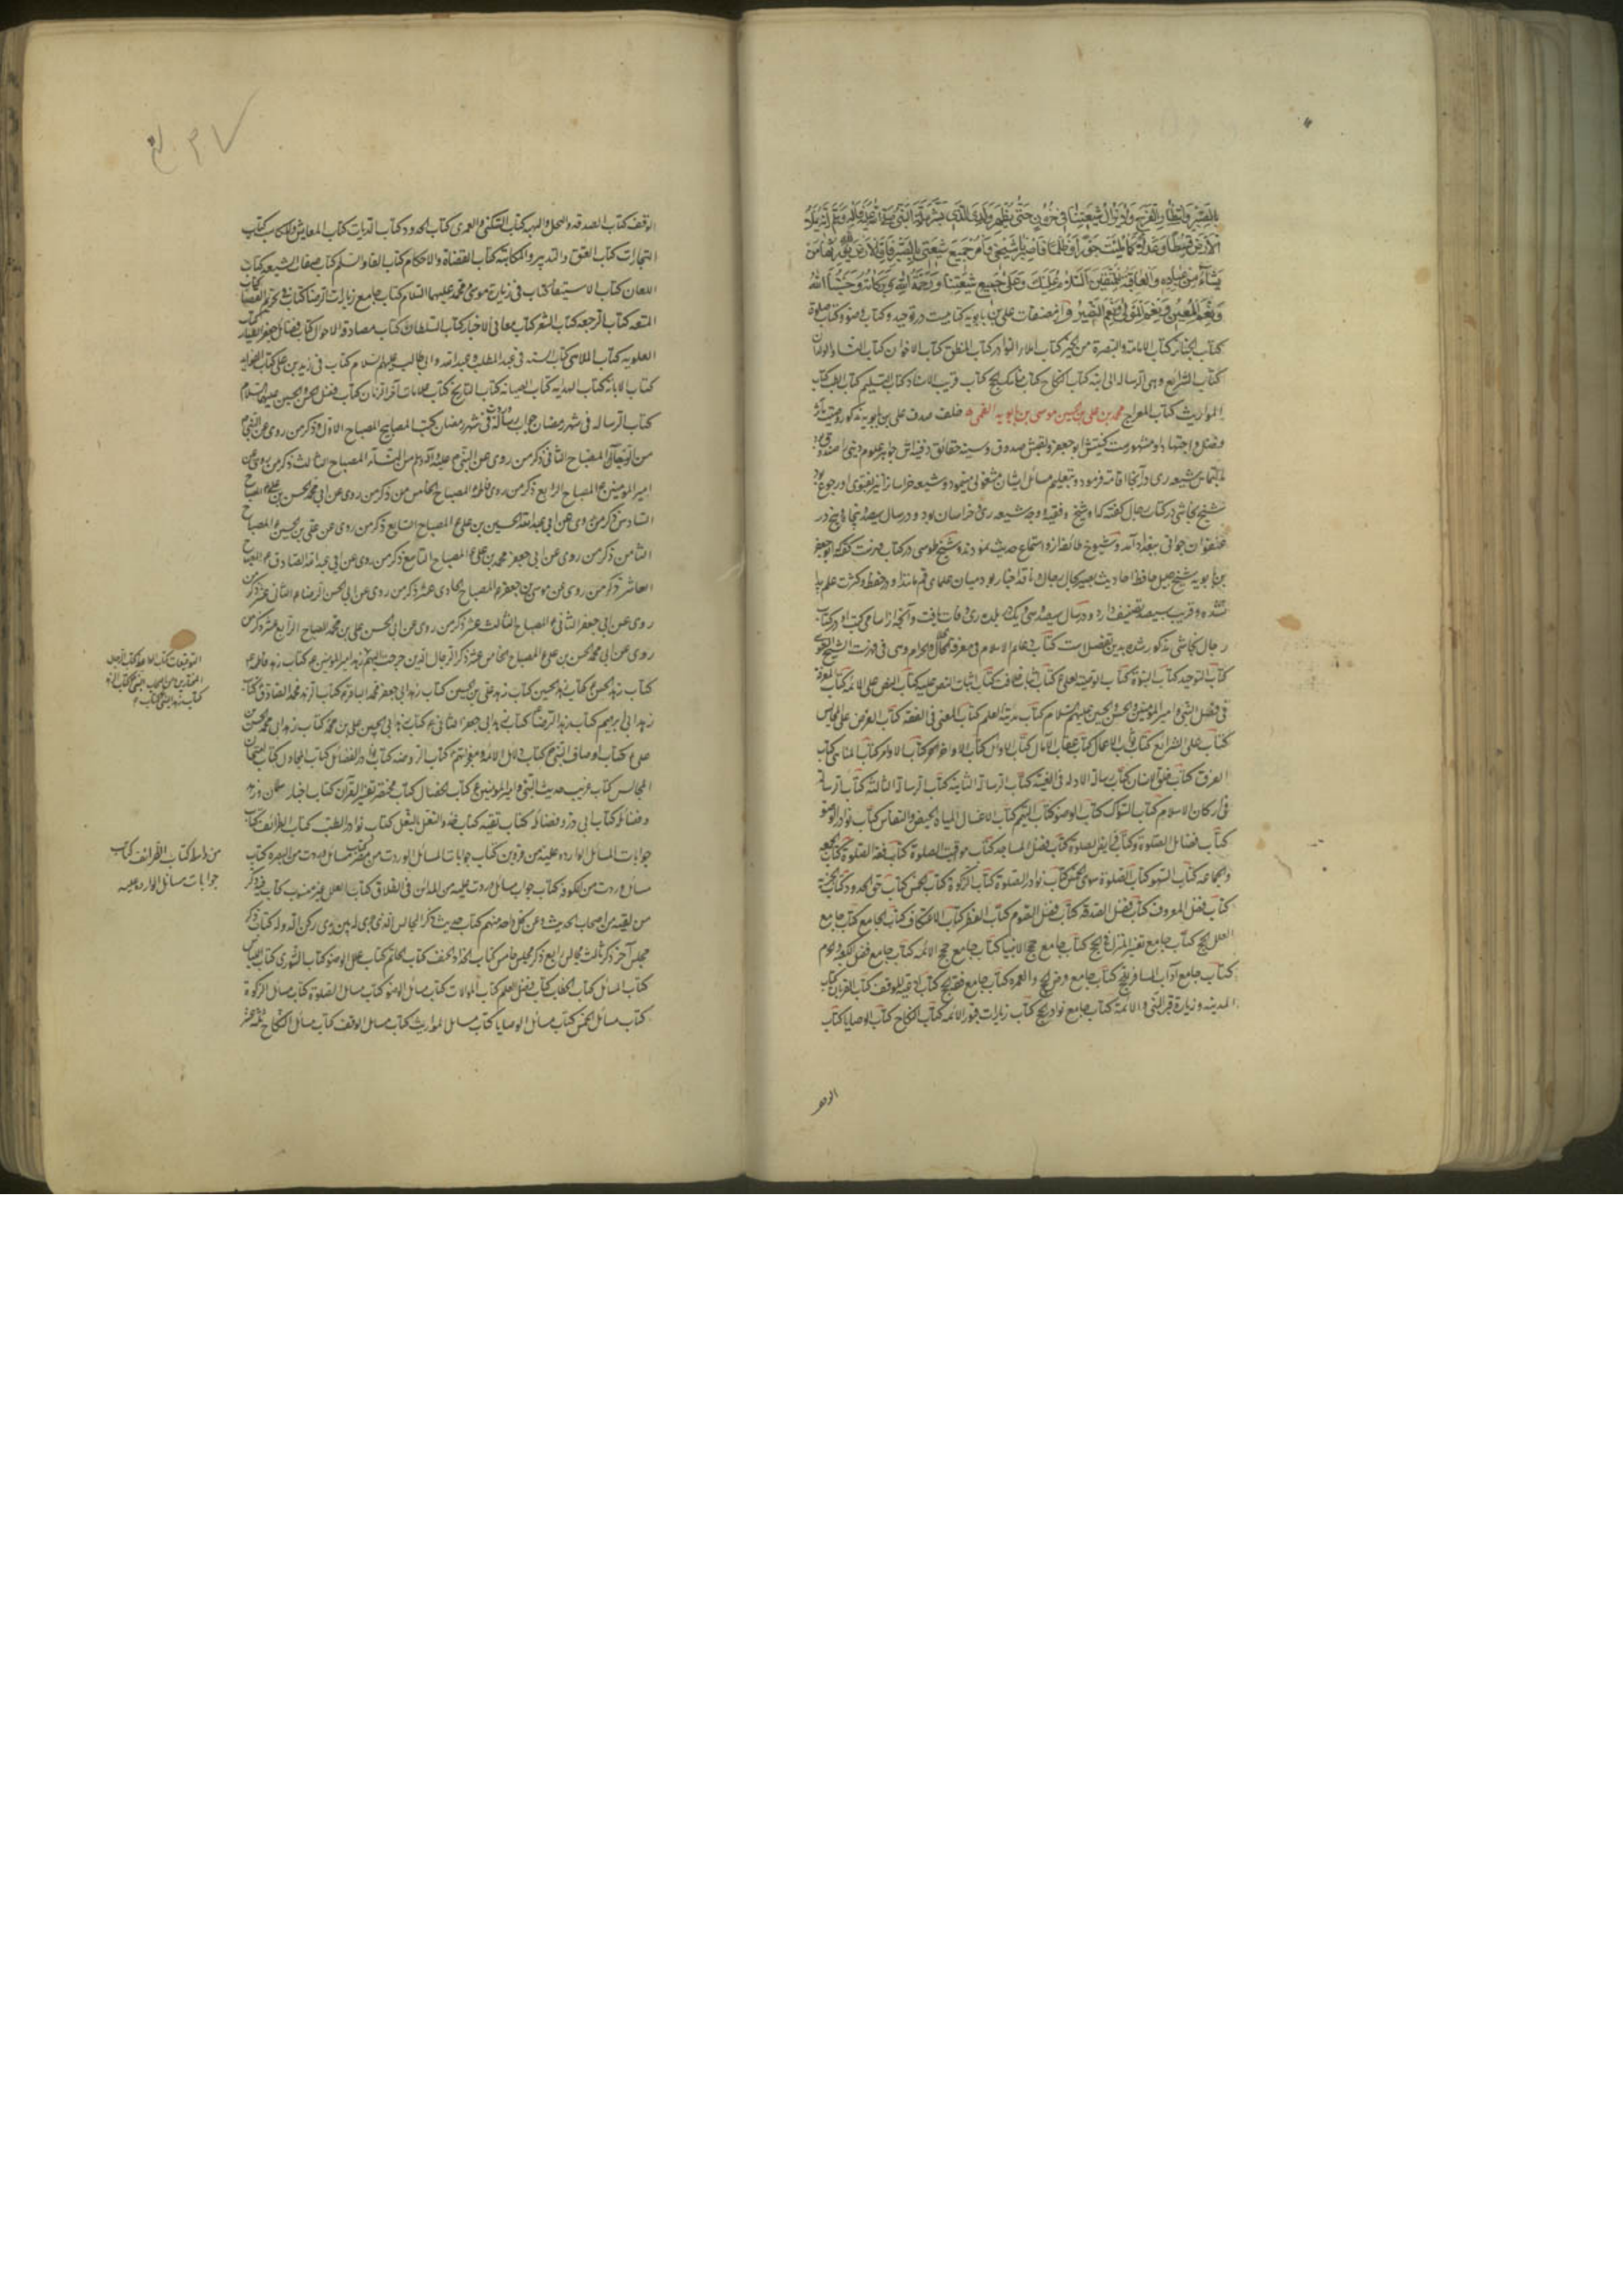 بالصبر وانتظار الفرج ولا يزال شيعتنا في حزن حتى يظهر ولدي الذي بشر به النبي صلى الله عليه وآله وسلم انه يملأ
الارض قسطا وعدلا كما ملئت جورا وظلما فاصبر يا شيخي وأمر جميع شيعتي بالصبر فان الارض لله يورثها من
يشاء من عباده والعاقبة للمتقين السلام عليك وعلى جميع شيعتنا ورحمة الله وبركاته وحسبنا الله
ونعم المعين ونعم المولى ونعم النصير و از مصنفات علي بن بابويه كتابيست در توحيد و كتاب وضو و كتاب صلوة
كتاب الجنائز كتاب الامامة والتبصرة من الحيرة كتاب املاء النوادر كتاب المنطق كتاب الاخوان كتاب النساء والولدان
كتاب الشرائع وهي الرسالة الى ابنه كتاب النكاح كتاب مناسك الحج كتاب قرب الاسناد كتاب التسليم كتاب الطب كتاب
المواريث كتاب المعراج محمد بن علي بن الحسين موسى بن بابويه القمي خلف صدق علي بن بابويه مذكور و
فضل و اجتهاد او مشهورست كنيتش ابو جعفر و لقبش صدوق و سينه حقائق دفينه اش جواهر علوم ديني را صندوق
شيعه ري در آنجا اقامت فرموده و بتعليم مسائل ايشان مشغولي مينمود و شيعه خراسان را نيز بفتوى او رجوع بود
شيخ نجاشي در كتاب رجال گفته كه او شيخ و فقيه و وجه شيعه ري و خراسان بود و در سال سيصد و پنجاه و پنج در
عنفوان جواني ببغداد آمد و شيوخ طائفه ازو استماع حديث نمودند و شيخ طوسي در كتاب فهرست گفته كه ابو جعفر
بن بابويه شيخ جليل حافظ احاديث بصير بحال رجال ناقد اخبار بود در ميان علماي قم مانند او در حفظ و كثرت علم پيدا
نشده و قريب سيصد تصنيف دارد و در سال سيصد و سي و يك در بلده ري وفات يافت و آنچه از اسامي كتب او در كتاب
رجال نجاشي مذكور شده بدين تفصيل ست كتاب دعائم الاسلام في معرفة الحلال والحرام
كتاب التوحيد كتاب النبوة كتاب الوصية لعلي ع كتاب اثبات خلافته كتاب اثبات النص عليه كتاب النص على الائمة كتاب المعرفة
في فضل النبي وامير المؤمنين والحسن والحسين عليهم السلام كتاب مدينة العلم كتاب المقنع في الفقه كتاب العرض على المجالس
كتاب علل الشرائع كتاب ثواب الاعمال كتاب عقاب الاعمال كتاب الاوائل كتاب الاواخر كتاب الاوامر كتاب المناهي كتاب
الفرق كتاب خلق الانسان كتاب رسالة الاولة في الغيبة كتاب الرسالة الثانية كتاب الرسالة الثالثة كتاب الرسالة
في اركان الاسلام كتاب السواك كتاب الوضوء كتاب التيمم كتاب الاغسال كتاب المياه كتاب الحيض والنفاس كتاب نوادر الوضوء
كتاب فضائل الصلوة كتاب فرائض الصلوة كتاب فضل المساجد كتاب مواقيت الصلوة كتاب فقه الصلوة كتاب الجمعة
والجماعة كتاب السهو كتاب الصلوة سوى الخمس كتاب نوادر الصلوة كتاب الزكوة كتاب الخمس كتاب حق الجداد كتاب الجزية
كتاب فضل المعروف كتاب فضل الصدقة كتاب فضل الصوم كتاب الفطر كتاب الاعتكاف كتاب الجامع كتاب جامع
العلل الحج كتاب جامع تفسير المنزل في الحج كتاب جامع حجج الانبياء كتاب جامع حجج الائمة كتاب جامع فضل الكعبة والحرم
كتاب جامع آداب المسافر للحج كتاب جامع فرض الحج والعمرة كتاب جامع فقه الحج كتاب ادعية الموقف كتاب القربان كتاب
المدينة وزيارة قبر النبي والائمة كتاب جامع نوادر الحج كتاب زيارات قبور الائمة كتاب النكاح كتاب الوصايا كتاب
الوقف
الوقف كتاب الصدقة والنحل والهبة كتاب السكنى والعمرى كتاب الحدود كتاب الديات كتاب المعايش والمكاسب كتاب
التجارات كتاب العتق والتدبير والمكاتبة كتاب القضاة والاحكام كتاب اللقاء والسلم كتاب صفات الشيعة كتاب
اللعان كتاب الاستسقاء كتاب في زيارة موسى ومحمد عليهما السلام كتاب جامع زيارات الرضا كتاب في تحريم الفقاع كتاب
المتعة كتاب الرجعة كتاب الشعر كتاب معاني الاخبار كتاب السلطان كتاب مصادقة الاخوان كتاب فضائل جعفر الطيار كتاب
العلوية كتاب الملاهي كتاب السنة في عبد المطلب وعبد الله وابي طالب عليهم السلام كتاب في زيد بن علي كتاب الفوائد
كتاب الابانة كتاب الهداية كتاب الضيافة كتاب التاريخ كتاب علامات آخر الزمان كتاب فضل الحسن والحسين عليهما السلام
كتاب الرسالة في شهر رمضان جواب رسالة وردت في شهر رمضان كتب المصابيح المصباح الاول ذكر من روى عن النبي
من الرجال المصباح الثاني ذكر من روى عن النبي عليه وآله وسلم من النساء المصباح الثالث ذكر من روى عن
امير المؤمنين ع المصباح الرابع ذكر من روى عن فاطمة المصباح الخامس ذكر من روى عن ابي محمد الحسن بن علي ع المصباح
السادس ذكر من روى عن ابي عبد الله الحسين بن علي ع المصباح السابع ذكر من روى عن علي بن الحسين ع المصباح
الثامن ذكر من روى عن ابي جعفر محمد بن علي ع المصباح التاسع ذكر من روى عن ابي عبد الله الصادق ع المصباح
العاشر ذكر من روى عن موسى بن جعفر ع المصباح الحادي عشر ذكر من روى عن ابي الحسن الرضا ع الثاني عشر ذكر من
روى عن ابي جعفر الثاني ع المصباح الثالث عشر ذكر من روى عن ابي الحسن علي بن محمد المصباح الرابع عشر ذكر من
روى عن ابي محمد الحسن بن علي ع المصباح الخامس عشر ذكر الرجال الذين خرجت اليهم زهد امير المؤمنين ع كتاب زهد فاطمة ع
كتاب زهد الحسن ع كتاب زهد الحسين كتاب زهد علي بن الحسين كتاب زهد ابي جعفر محمد الباقر ع كتاب زهد محمد الصادق ع كتاب
زهد ابي ابراهيم كتاب زهد الرضا كتاب زهد ابي جعفر الثاني ع كتاب زهد ابي الحسن علي بن محمد كتاب زهد ابي محمد الحسن بن
علي ع كتاب اوصاف النبي ص كتاب دلائل الائمة ومعجزاتهم ع كتاب الروضة كتاب نوادر الفضائل كتاب المحافل كتاب امتحان
المجالس كتاب غريب حديث النبي وامير المؤمنين ع كتاب الخصال كتاب مختصر تفسير القرآن كتاب اخبار سلمان وزهده
وفضائله كتاب ابي ذر وفضائله كتاب تقية كتاب حذو النعل بالنعل كتاب نوادر الطب كتاب الطرائف كتاب
جوابات المسائل الواردة عليه من قزوين كتاب جوابات المسائل الوردت من مصر كتاب مسائل وردت من البصرة كتاب
مسائل وردت من الكوفة كتاب جواب مسائل وردت عليه من المدائن في الطلاق كتاب العلل غير مبوب كتاب فيه ذكر
من لقيه من اصحاب الحديث وعن كل واحد منهم كتاب حديث ذكر المجالس الذي جرى له بين يدي ركن الدولة كتاب ذكر
مجلس آخر ذكر ثالث مجالس رابع ذكر مجلس خامس كتاب الحذاء والخف كتاب الخاتم كتاب علل الوضوء كتاب الشورى كتاب اللباس
كتاب المسائل كتاب الخطاب كتاب فضل العلم كتاب الموالات كتاب مسائل الوضوء كتاب مسائل الصلوة كتاب مسائل الزكوة
كتاب مسائل الخمس كتاب مسائل الوصايا كتاب مسائل المواريث كتاب مسائل الوقف كتاب مسائل النكاح ثلثة عشر
من واسط كتاب الطرائف كتاب
جوابات مسائل الواردة عليه